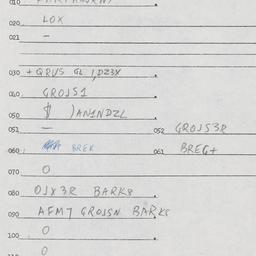 010
020 LOX
021 -
030 + QRUS GL 1,DZ3X
040 GROJS1
050 $ )AN1NDZL
051 - 052 GROJS3R
060 BREK 061 BREG+
070 O
080 OJX3R BARK8
090 AFM7 GROJSN BARK8
100 O
O